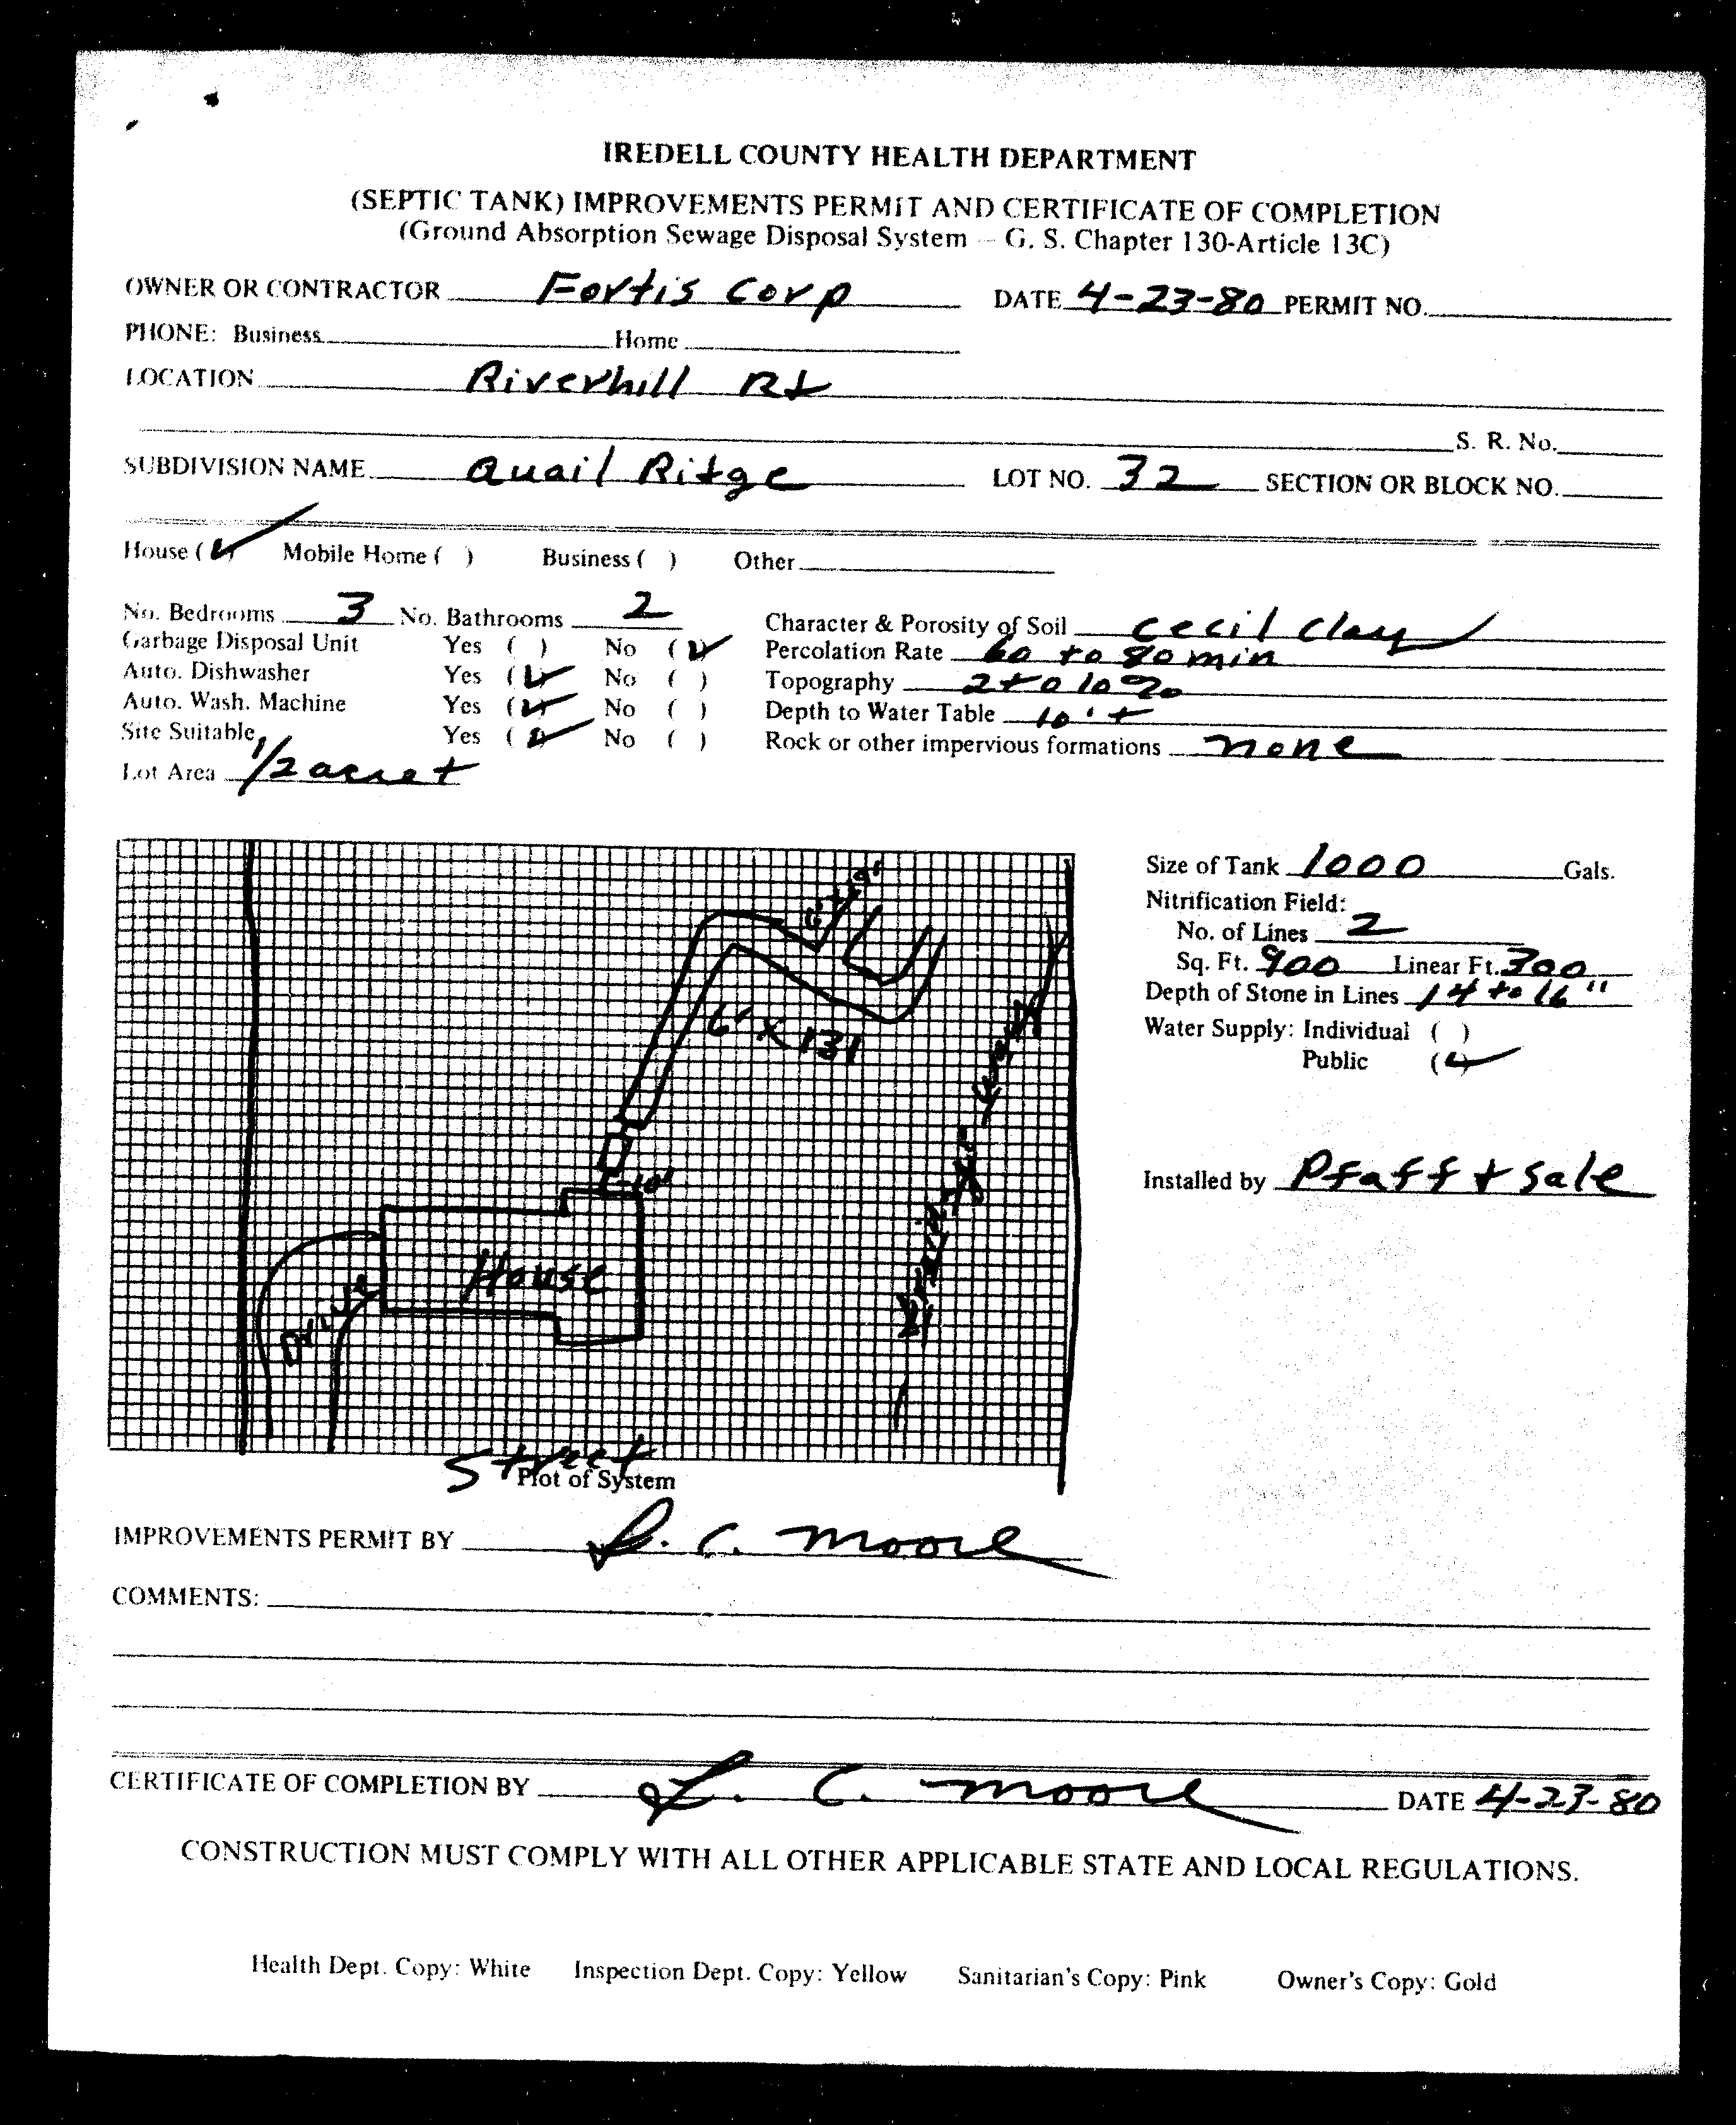 IREDELL COUNTY HEALTH DEPARTMENT
(SEPTIC TANK) IMPROVEMENTS PERMIT AND CERTIFICATE OF COMPLETION
(Ground Absorption Sewage Disposal System – G. S. Chapter 130-Article 13C)
OWNER OR CONTRACTOR Fortis Corp DATE 4-23-80 PERMIT NO.
PHONE: Business Home
LOCATION Riverhill Rd
S. R. No.
SUBDIVISION NAME Quail Ridge LOT NO. 32 SECTION OR BLOCK NO.
House (✓) Mobile Home ( ) Business ( ) Other
No. Bedrooms 3 No. Bathrooms 2 Character & Porosity of Soil Cecil Clay
Garbage Disposal Unit Yes ( ) No (✓) Percolation Rate 60 to 80 min
Auto. Dishwasher Yes (✓) No ( ) Topography 2 to 10%
Auto. Wash. Machine Yes (✓) No ( ) Depth to Water Table 10'+
Site Suitable Yes (✓) No ( ) Rock or other impervious formations none
Lot Area 1/2 acre+
Size of Tank 1000 Gals.
Nitrification Field:
No. of Lines 2
Sq. Ft. 900 Linear Ft. 300
Depth of Stone in Lines 14 to 16"
Water Supply: Individual ( )
Public (✓)
6' X 131
10'
Installed by Pfaff + Sale
House
Drive
Street
Plot of System
IMPROVEMENTS PERMIT BY L. C. Moore
COMMENTS:
CERTIFICATE OF COMPLETION BY L. C. Moore DATE 4-23-80
CONSTRUCTION MUST COMPLY WITH ALL OTHER APPLICABLE STATE AND LOCAL REGULATIONS.
Health Dept. Copy: White Inspection Dept. Copy: Yellow Sanitarian's Copy: Pink Owner's Copy: Gold